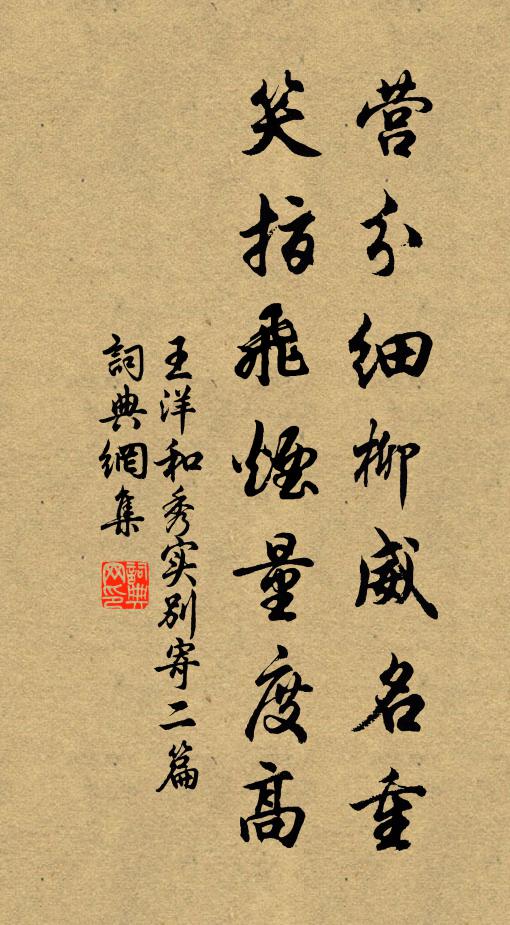 营分细柳威名重
笑指飛煙量度高
王洋和秀实别寄二篇
詞典網集
詞典网印